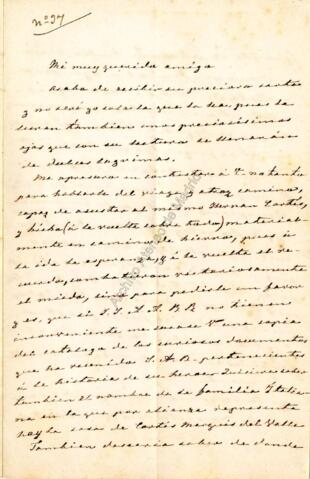 nº 37
Mi muy querida amiga
Acaba de recibir su preciosa carta
y no seré yo sola la que la lea, pues la
leeran tambien unos preciosisimos
ojos que con su lectura se llenarán
de dulces lagrimas.
Me apresuro á contestar á V. no tanto
para hablarle del viaje y atroz camino,
capaz de asustar al mismo Hernan Cortés,
y hecho (á la vuelta sobre todo) material-
mente en camino de hierro, pues á
la ida la esperanza, y á la vuelta el re-
cuerdo, combatieron victoriosamente
el miedo, sino para pedirle un favor
y es, que si S.S. A.A. R.R. no tienen
inconveniente me saque V. una copia
del catalogo de los curiosos documentos
que ha reunido S.A.R. pertenecientes
á la historia de su heroe; quisiera saber
tambien el nombre de la familia Italia-
na en la que por alianza representa
hoy la casa de Cortés Marques del Valle
Tambien desearia saber de donde